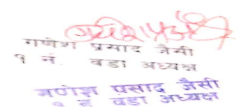 गणेश प्रसाद जैसी
१ नं. वडा अध्यक्ष
गणेश प्रसाद जैसी
१ नं वडा अध्यक्ष